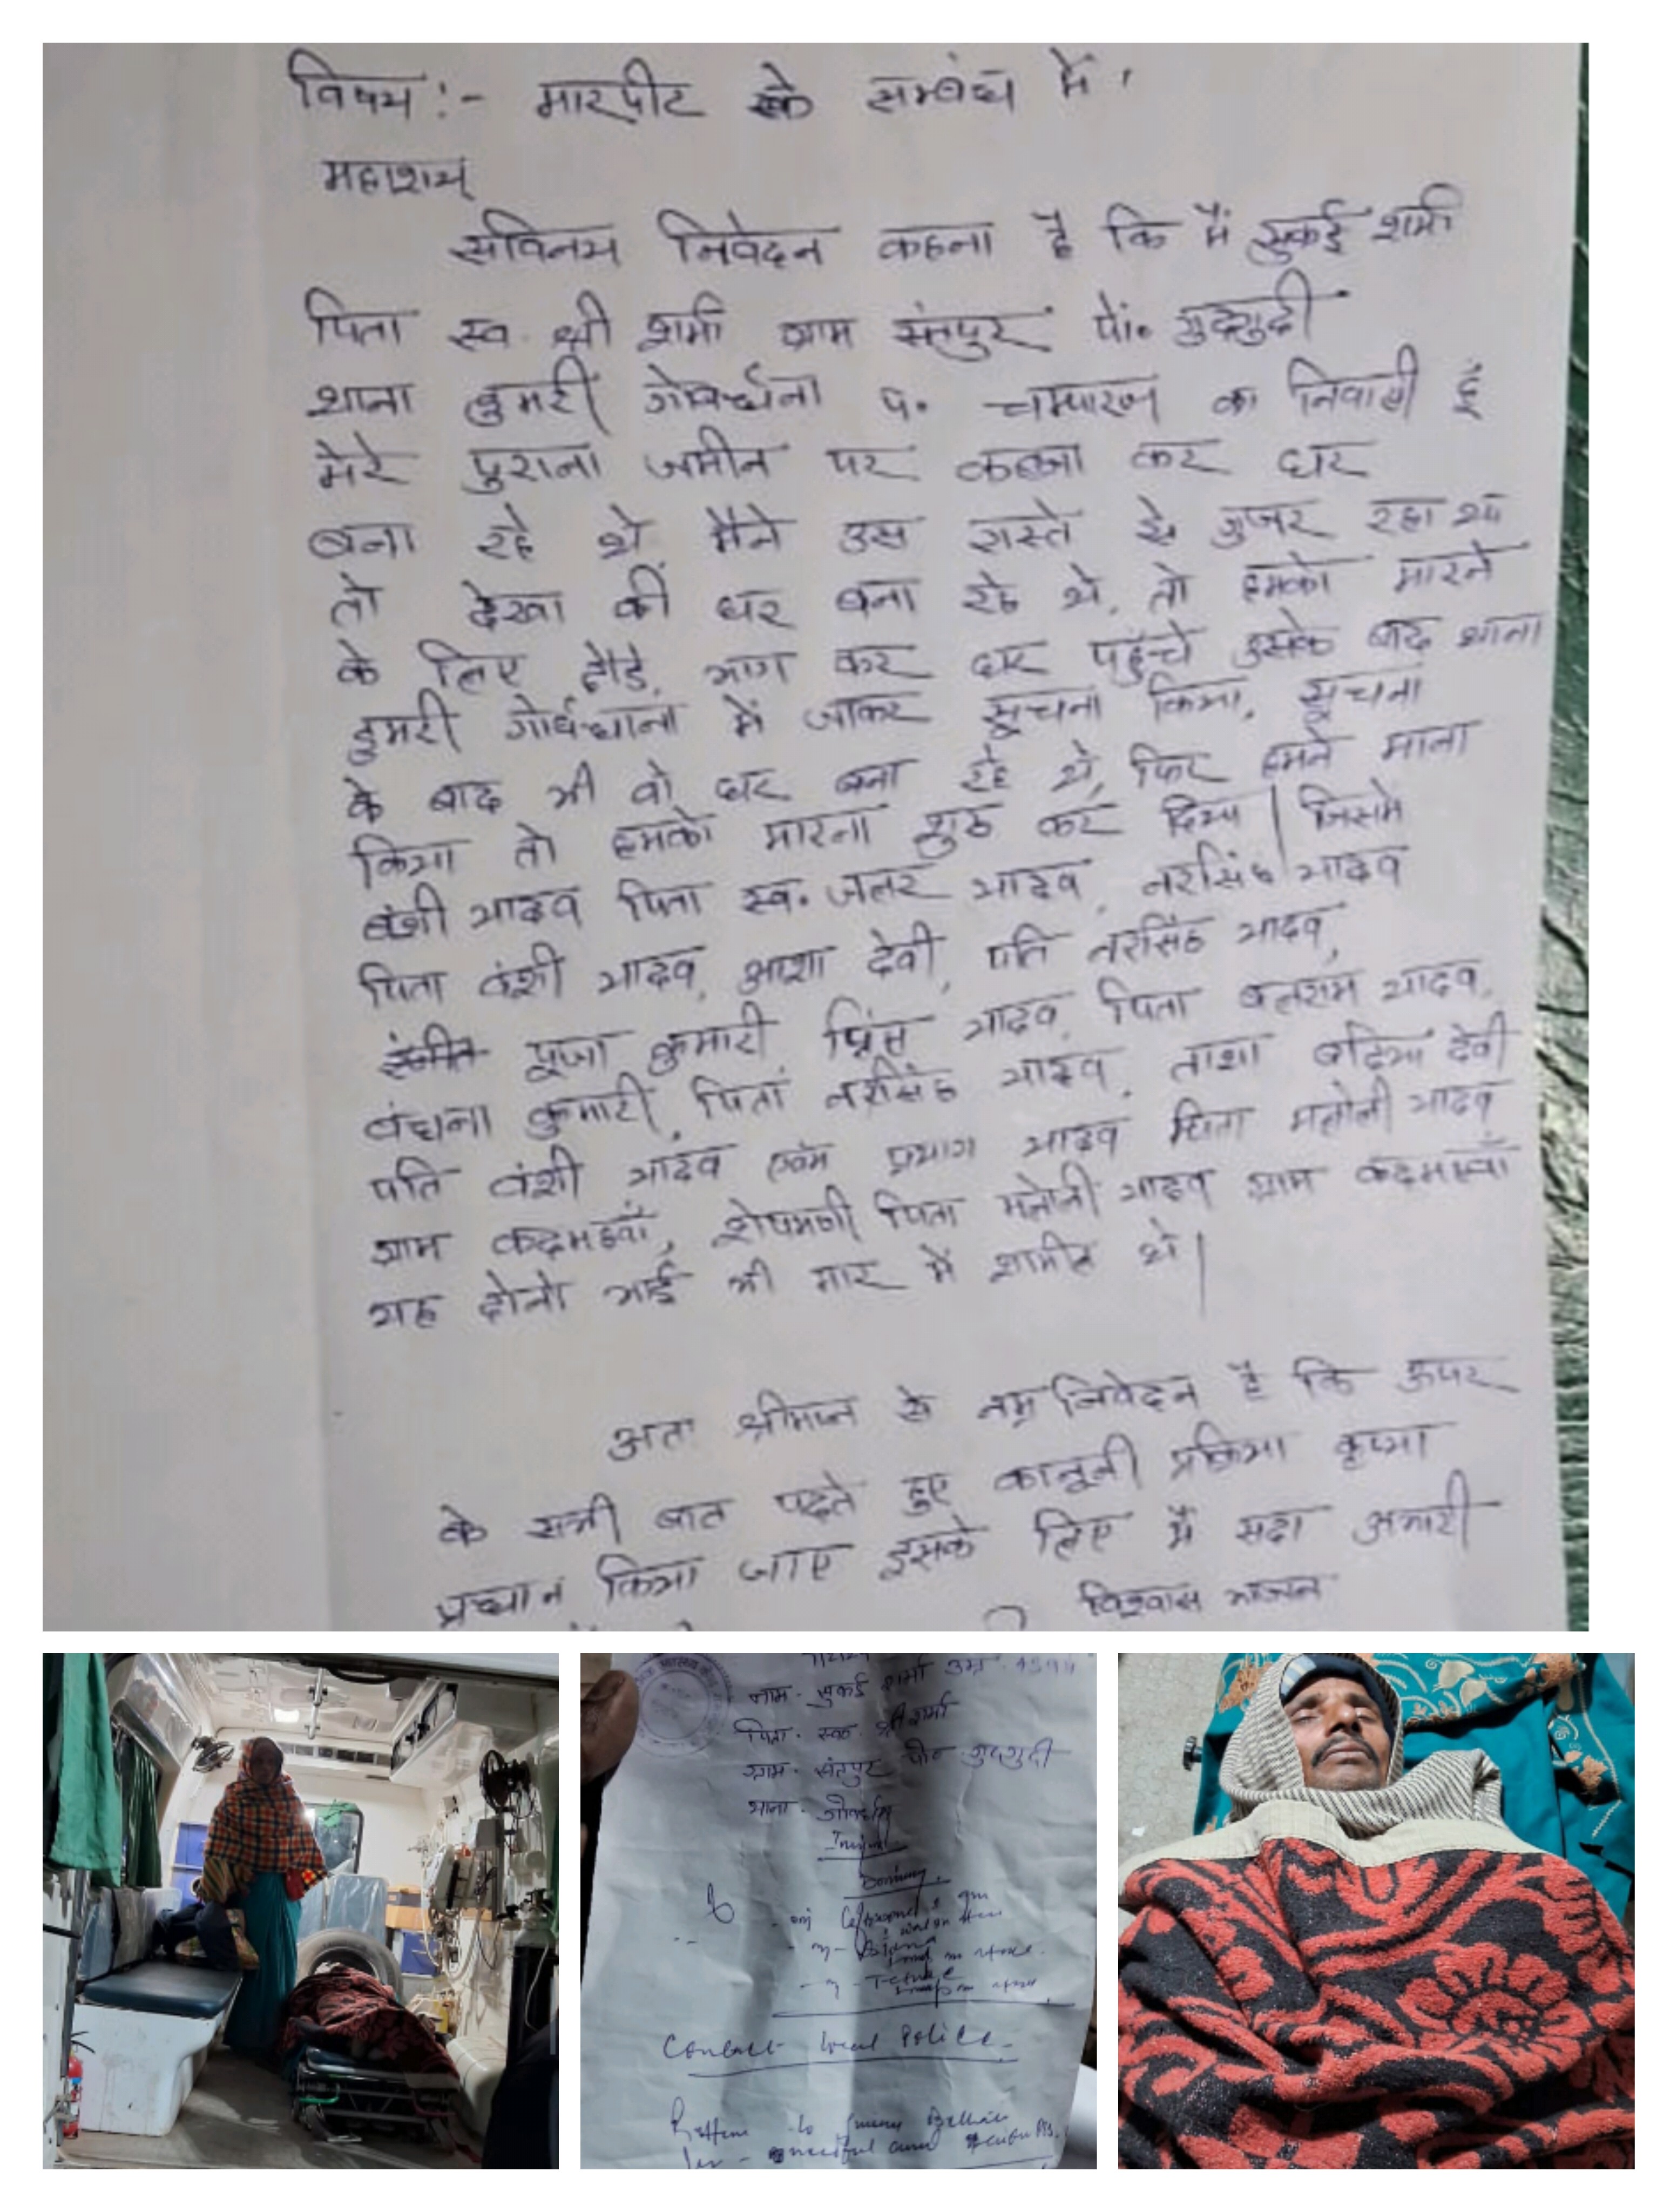 विषय :- मारपीट के सम्बंध में,
महाशय
सविनय निवेदन कहना है कि मैं सुकई शर्मा
पिता स्व. श्री शर्मा ग्राम संतपुर पो॰ गुदगुदी
थाना डुमरी गोवर्धना प॰ चम्पारण का निवासी हूं
मेरे पुराना जमीन पर कब्जा कर घर
बना रहे थे मैने उस रास्ते से गुजर रहा था
तो देखा की घर बना रहे थे, तो हमको मारने
के लिए दौडे, भाग कर घर पहुँचे उसके बाद थाना
डुमरी में जाकर सूचना किया, सूचना
के बाद भी वो घर बना रहे थे, फिर हमने माना
किया तो हमको मारना शुरु कर दिया | जिसमे
बंशी यादव पिता स्व. जतर यादव, नरसिंह यादव
पिता वंशी यादव, आशा देवी, पति नरसिंह यादव,
पूजा कुमारी, प्रिंस यादव, पिता बलराम यादव,
वंधना कुमारी, पिता नरसिंह यादव, देवी
पति वंशी यादव एवम प्रयाग यादव पिता मनोली यादव
ग्राम कदमहवाँ, शेषमणी पिता मनोली यादव ग्राम कदमहवाँ
यह दोनो भाई भी मार में शामील थे |
अतः श्रीमान से नम्र निवेदन है कि ऊपर
के सभी बात पढ़ते हुए कानूनी प्रक्रिया कृप्या
प्रध्यान किया जाए इसके लिए मैं सदा अभारी
विश्वास भाजन
नाम. सुकई शर्मा उम्र.
पिता. स्व. श्री शर्मा
ग्राम. संतपुर पो॰ गुदगुदी
थाना. गोवर्धना
Contact local Police